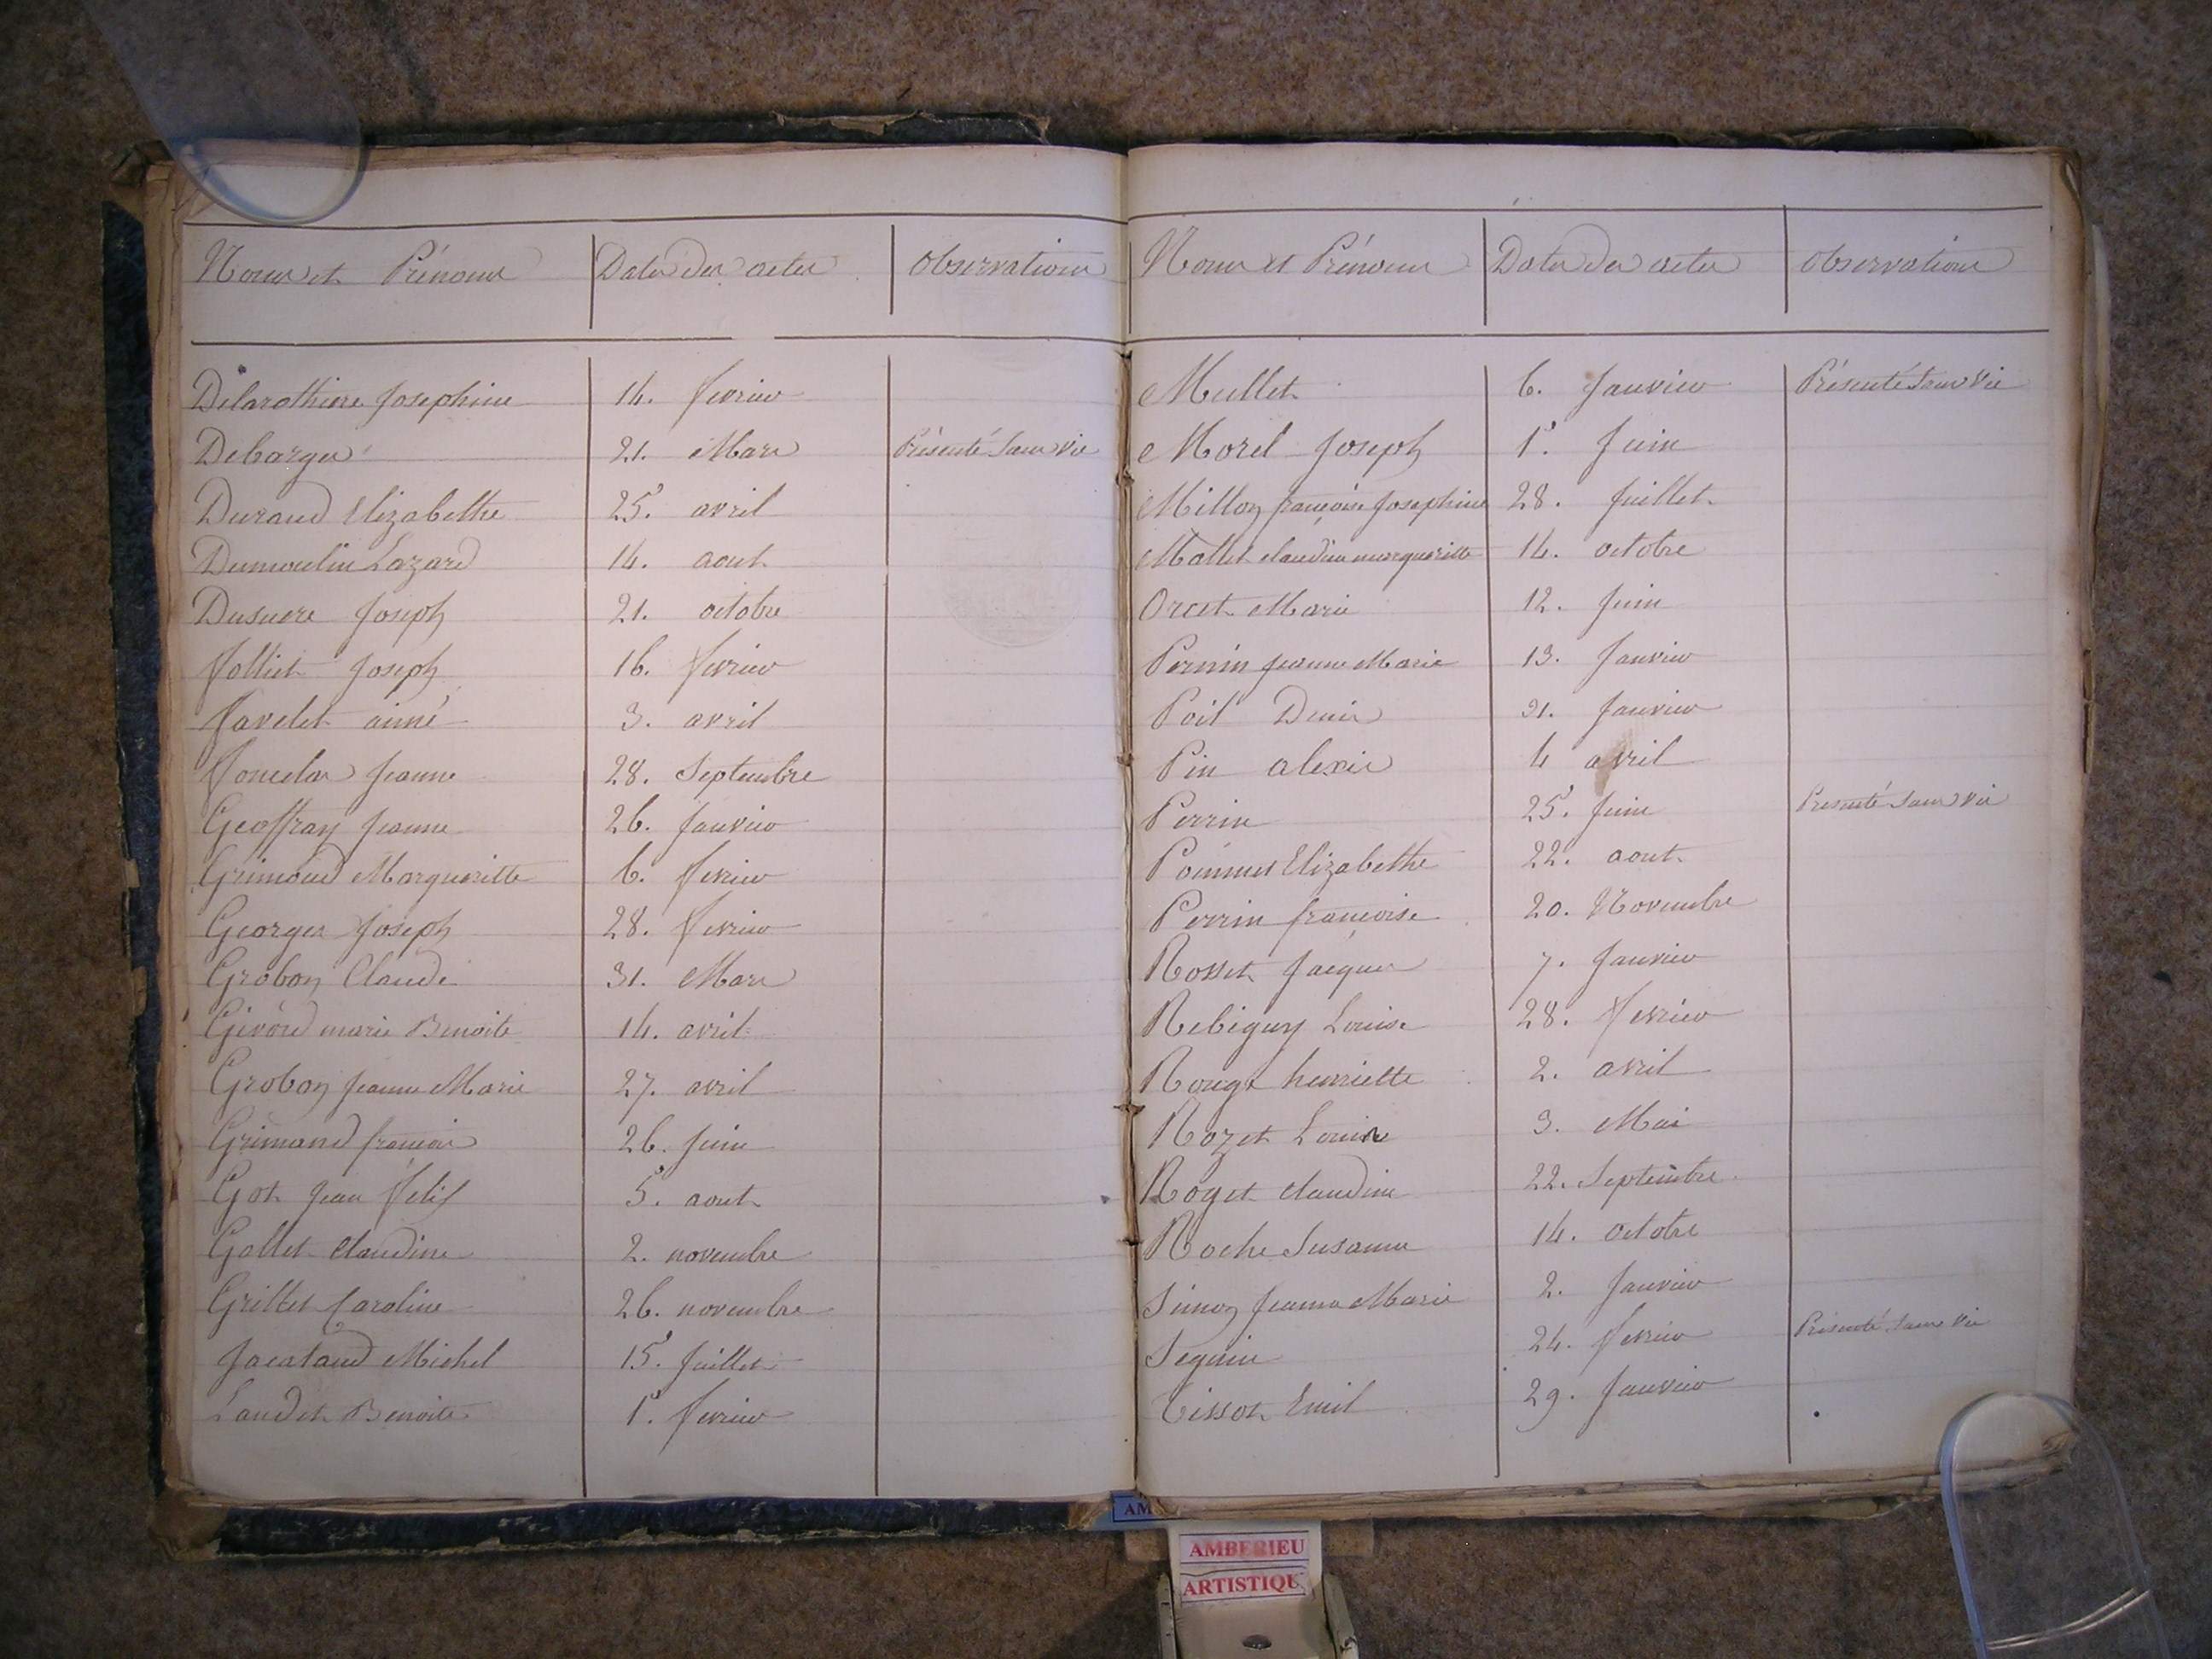 Noms et Prénoms Dates des actes Observations
Delarothiere Josephine 14. fevrier
Debarges 21. Mars Présenté Sans Vie
Durand Elizabethe 25. avril
Dumoulin Lazard 14. aout
Dusuere Joseph 21. octobre
Folliet Joseph 16. fevrier
Favelet aimé 3. avril
Jeanne 28. Septembre
Geoffray Jeanne 26. Janvier
Grimaud Margueritte 6. fevrier
Georges Joseph 28. fevrier
Grobon Claude 31. Mars
Girôud marie Benoite 14. avril
Grobon Jeanne Marie 27. avril
Grimand francois 26. Juin
Got Jean Felix 5. aout
Gollet Claudine 2. novembre
Grillet Caroline 26. novembre
Jacataud Michel 15. Juillet
Laudet Benoite 1er. fevrier
Noms et Prénoms Dates des actes Observations
Mullet 6. Janvier Présenté Sans Vie
Morel Joseph 1er. Juin
Millon françoise Josephine 28. Juillet
Mollet claudine margueritte 14. octobre
Orcet Marie 12. Juin
Pernin Jeanne Marie 13. Janvier
Poil Denis 31. Janvier
Pin alexis 4 avril
Perrin 25. Juin Presenté Sans Vie
Elizabethe 22. aout
Perrin françoise 20. Novembre
Rosset Jacques 7. Janvier
Rebiguy Louise 28. fevrier
Rouge henriette 2. avril
Rozet Louise 3. Mai
Roget claudine 22. Septembre
Roche Susanne 14. octobre
Simon Jeanne Marie 2. Janvier
Seguin 24. fevrier Présenté Sans Vie
Tissot Emil 29. Janvier
AM
AMBERIEU
ARTISTIQU